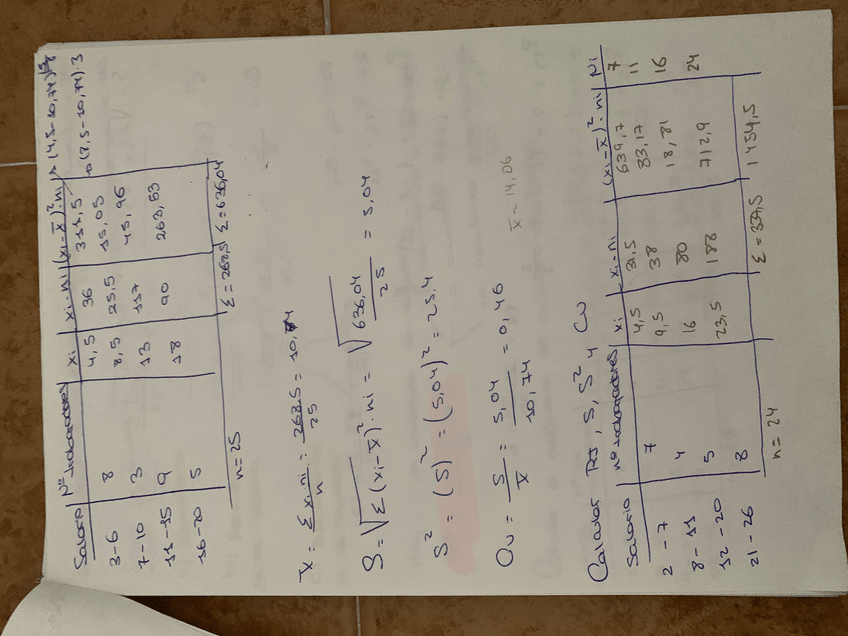 Salario | Nº trabajadores | xi | xi·ni | (xi-x̄)²·ni → (4,5-10,74)²·8
3-6 | 8 | 4,5 | 36 | 311,5 → (8,5-10,74)·3
7-10 | 3 | 8,5 | 25,5 | 15,05
11-15 | 9 | 13 | 117 | 45,96
16-20 | 5 | 18 | 90 | 263,53
n=25 Σ=268,5 Σ=636,04
x̄ = Σxi·ni / n = 268,5 / 25 = 10,74
S = √Σ(xi-x̄)²·ni = √636,04 / 25 = 5,04
S² = (S)² = (5,04)² = 25,4
Cv = S / x̄ = 5,04 / 10,74 = 0,46 x̄=14,06
Calcular S, S² y Cv
Salario | nº trabajadores | xi | xi·ni | (xi-x̄)²·ni | Ni
2-7 | 7 | 4,5 | 31,5 | 639,7 | 7
8-11 | 4 | 9,5 | 38 | 83,17 | 11
12-20 | 5 | 16 | 80 | 18,81 | 16
21-26 | 8 | 23,5 | 188 | 712,9 | 24
n=24 Σ=337,5 1454,5